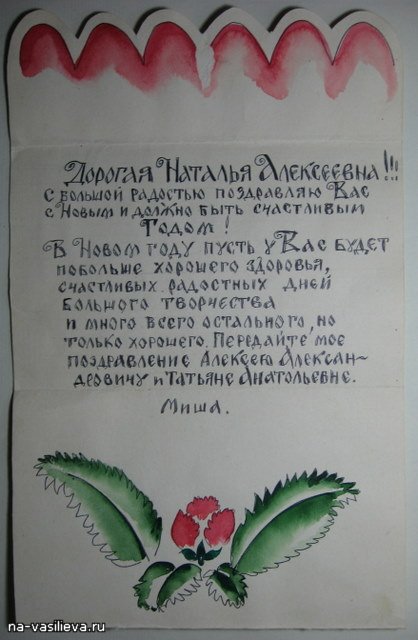 Дорогая Наталья Алексеевна!!!
С большой радостью поздравляю Вас
с Новым и должно быть счастливым
Годом!
В Новом году пусть у Вас будет
побольше хорошего здоровья,
счастливых радостных дней
большого творчества
и много всего остального, но
только хорошего. Передайте мое
поздравление Алексею Алексан-
деровичу и Татьяне Анатольевне.
Миша.
na-vasilieva.ru